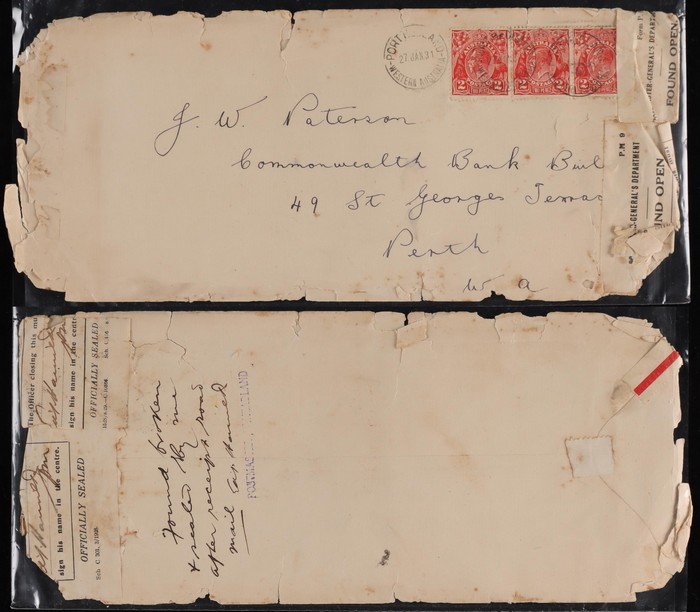 PORT HEDLAND
27 JAN 31
WESTERN AUSTRALIA
2 PENCE 2
2 2
2 2
Form P
ER-GENERAL'S DEPART
FOUND OPEN
J. W. Paterson
Commonwealth Bank Buil
49 St Georges Terrac
Perth
W A
P.M 9
-GENERAL'S DEPARTMENT
UND OPEN
The Officer closing this mu
sign his name in the centr
OFFICIALLY SEALED
sign his name in the centre.
OFFICIALLY SEALED
Sch. C
Found broken
& sealed by me
after receipt road
mail
POSTMAS
LAND